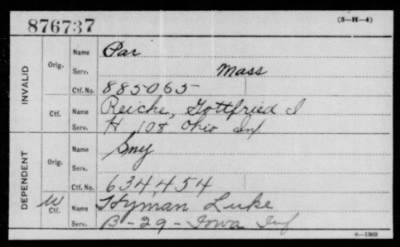 876737
(3-H-4)
INVALID
Orig.
Name Par
Serv. Mass
Ctf. No. 885065-
Ctf.
Name Reichs, Gottfried I
Serv. H 108 Ohio Inf
DEPENDENT
Orig.
Name Smy
Serv.
Ctf. No. 634454
W Ctf.
Name Hyman Luke
Serv. B-29-Iowa Inf